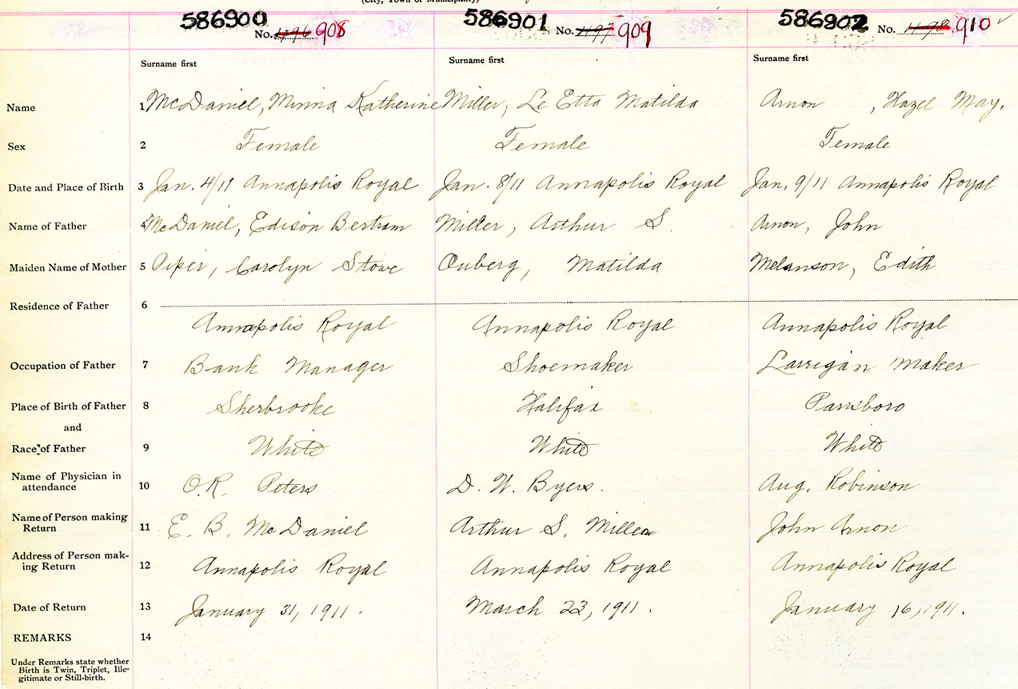 (City, Town or Municipality)
586900 586901 586902
No. 496 908 No. 497 909 No. 498 910
Surname first Surname first Surname first
Name 1 McDaniel, Minna Katherine Miller, Le Etta Matilda Amon , Hazel May.
Sex 2 Female Female Female
Date and Place of Birth 3 Jan. 4/11 Annapolis Royal Jan. 8/11 Annapolis Royal Jan. 9/11 Annapolis Royal
Name of Father 4 McDaniel, Edison Bertram Miller, Arthur S. Amon, John
Maiden Name of Mother 5 Piper, Carolyn Stowe Ouberg, Matilda Melanson, Edith
Residence of Father 6
Annapolis Royal Annapolis Royal Annapolis Royal
Occupation of Father 7 Bank Manager Shoemaker Larrigan maker
Place of Birth of Father 8 Sherbrooke Halifax Parrsboro
and
Race of Father 9 White White White
Name of Physician in
attendance 10 O.R. Peters D. W. Byers. Aug. Robinson
Name of Person making
Return 11 E. B. McDaniel Arthur S. Miller John Amon
Address of Person mak-
ing Return 12 Annapolis Royal Annapolis Royal Annapolis Royal
Date of Return 13 January 31, 1911. March 23, 1911. January 16, 1911.
REMARKS 14
Under Remarks state whether
Birth is Twin, Triplet, Ille-
gitimate or Still-birth.